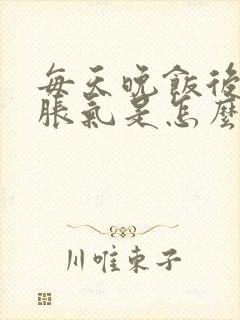 每天晚飯後
脹氣是怎麼
川唯東子